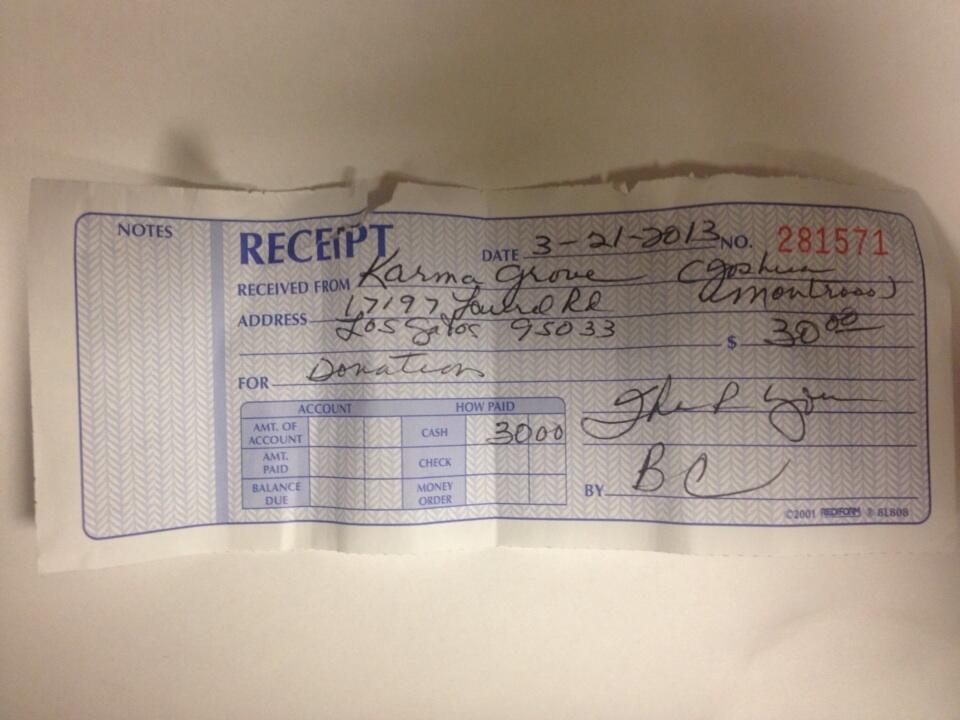 NOTES
RECEIPT DATE 3-21-2013 NO. 281571
RECEIVED FROM Karma Grove (Joshua
Montross)
ADDRESS 17197 Laurel Rd
Los Gatos 95033 $ 30 00
FOR Donation
Thank you
ACCOUNT HOW PAID
AMT. OF ACCOUNT CASH 30 00
AMT. PAID CHECK
BALANCE DUE MONEY ORDER
BY BC
©2001 REDIFORM ® 8L808